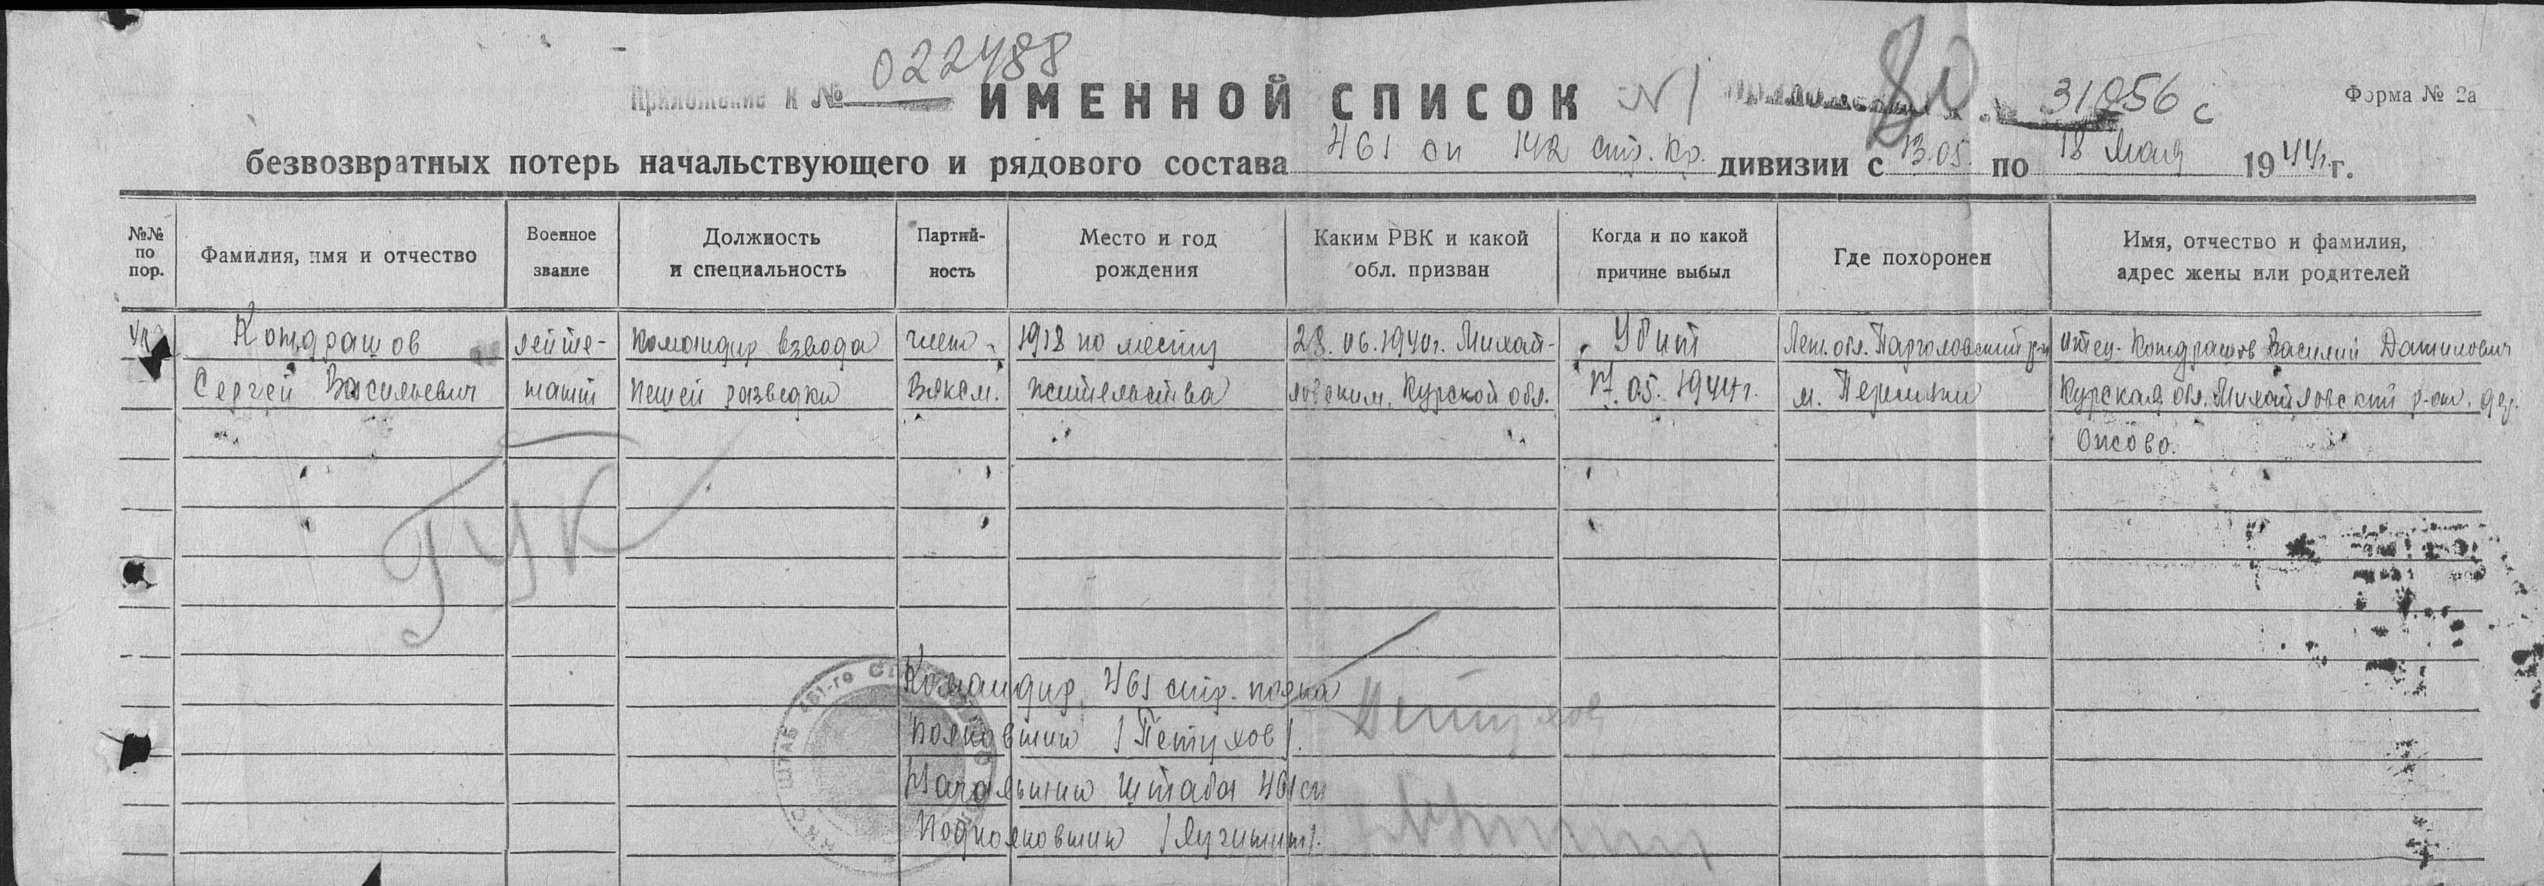 Приложение к № 022488
ИМЕННОЙ СПИСОК N 1
31056 с
Форма № 2а
безвозвратных потерь начальствующего и рядового состава 461 сп 142 стр. Кр. дивизии с 13.05. по 18 мая 1944 г.
№№ по пор.
Фамилия, имя и отчество
Военное звание
Должность и специальность
Партийность
Место и год рождения
Каким РВК и какой обл. призван
Когда и по какой причине выбыл
Где похоронен
Имя, отчество и фамилия, адрес жены или родителей
Кондрашов лейте- Командир взвода член 1918 по месту 28.06.1940г. Михай- Убит Лен. обл. Парголовский р-н отец-Кондрашов Василий Данилович
Сергей Васильевич нант пешей разведки Влксм. жительства ловским, Курской обл. 17.05.1944г. м. Курская обл. Михайловский р-он. дер.
Ожово.
ГУК
ШТАБ 461-го
Командир 461 стр. полка
полковник /Петухов/.
Начальник штаба 461 сп
Подполковник